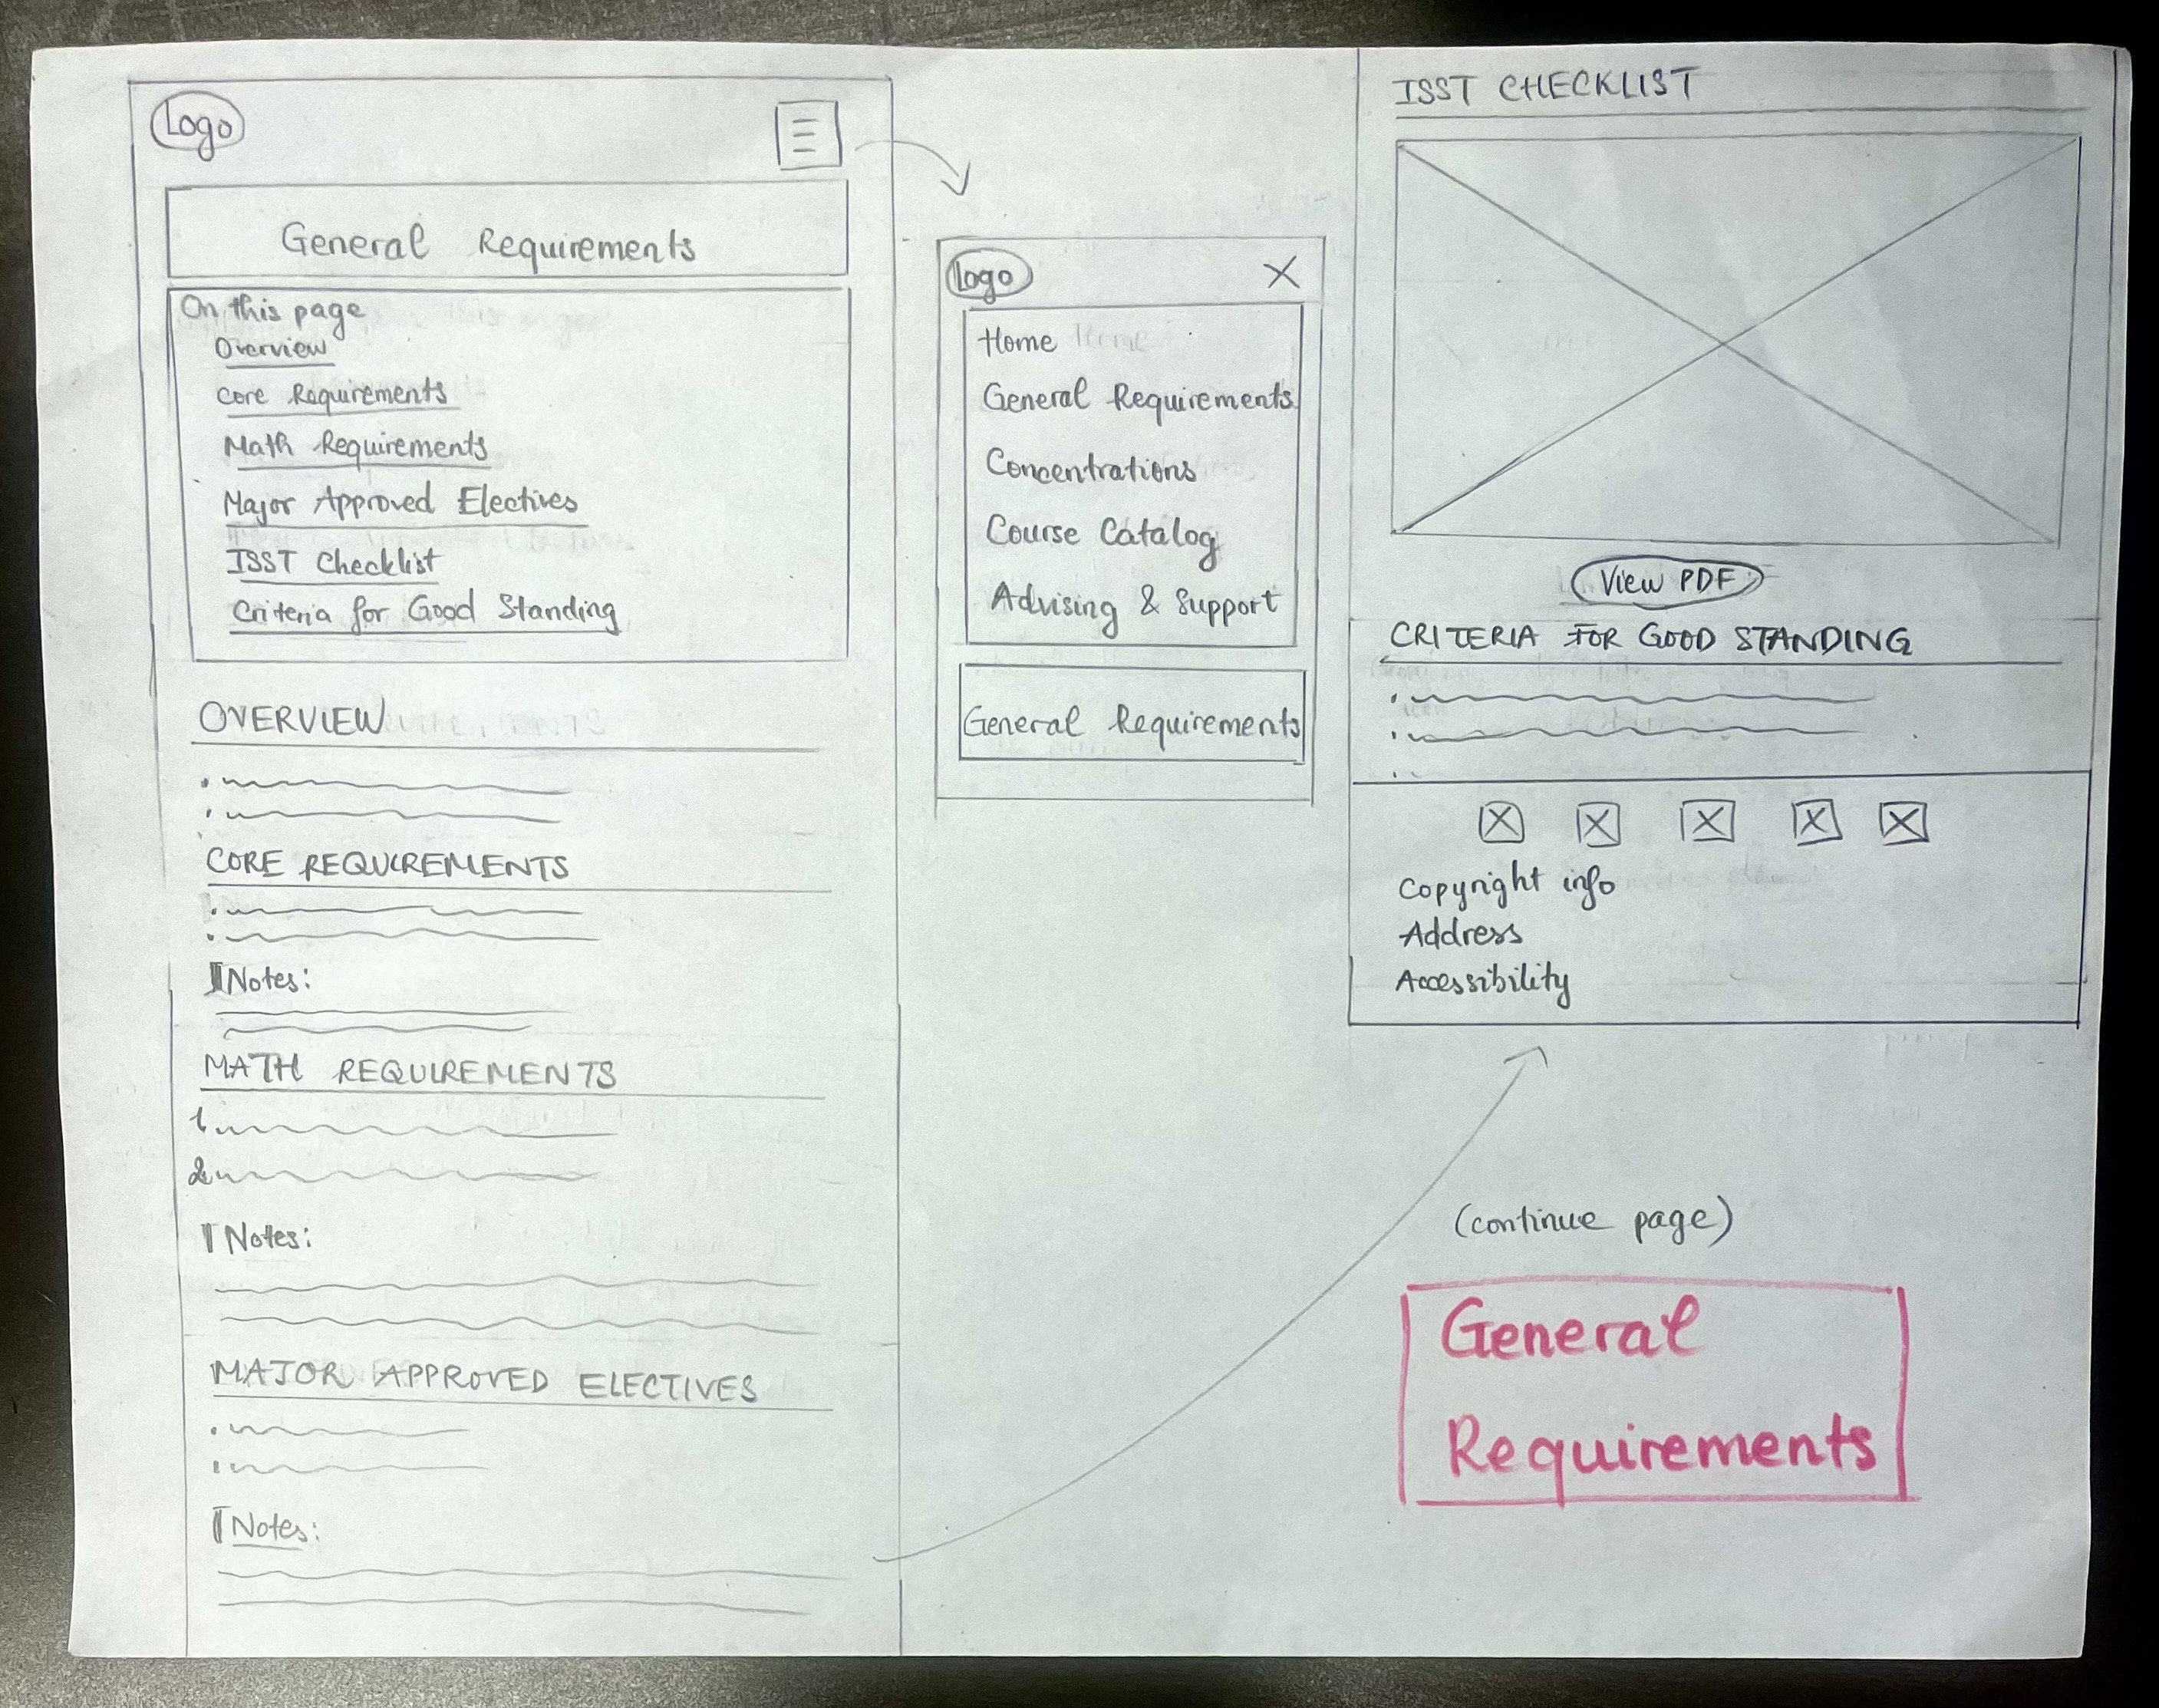 Logo
General Requirements
On this page
Overview
Core Requirements
Math Requirements
Major Approved Electives
ISST Checklist
Criteria for Good Standing
OVERVIEW
CORE REQUIREMENTS
Notes:
MATH REQUIREMENTS
1.
2.
Notes:
MAJOR APPROVED ELECTIVES
Notes:
Logo X
Home
General Requirements
Concentrations
Course Catalog
Advising & Support
General Requirements
ISST CHECKLIST
View PDF
CRITERIA FOR GOOD STANDING
Copyright info
Address
Accessibility
(continue page)
General
Requirements